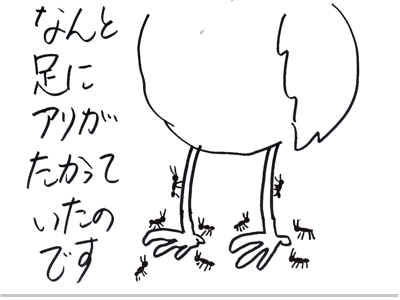 なんと
足に
アリが
たかって
いたの
です